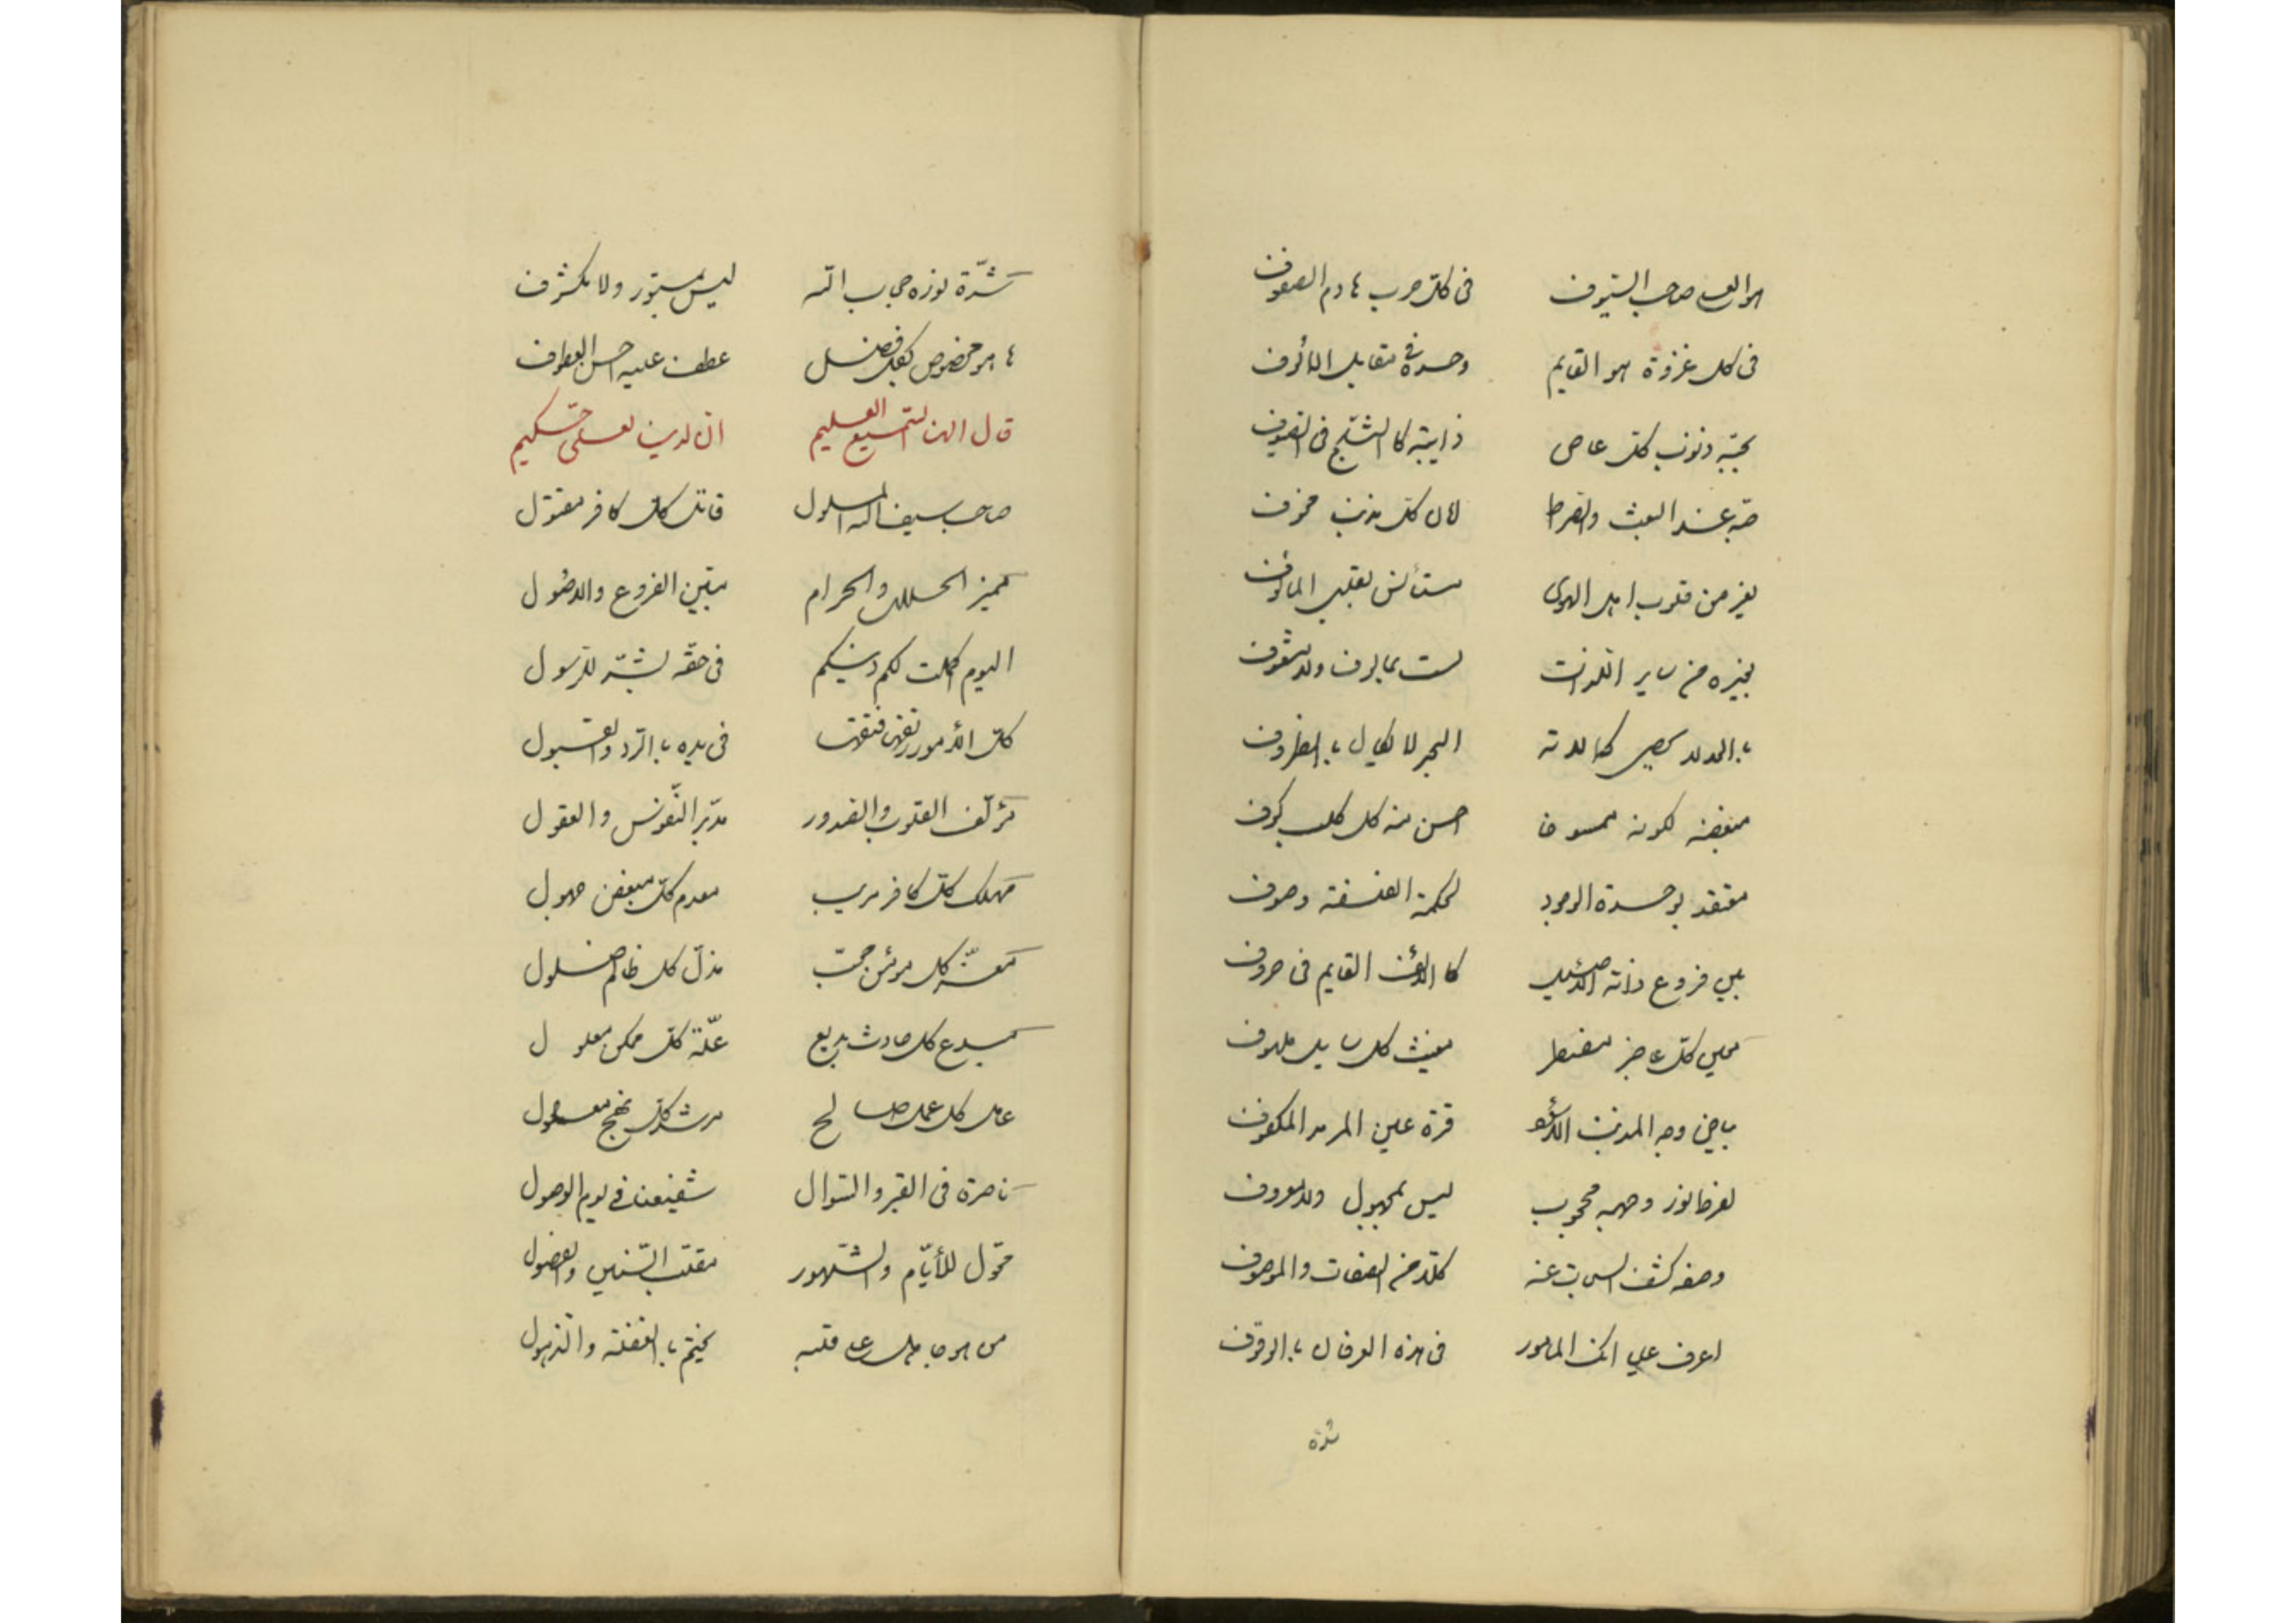 هو العلي صاحب السيوف في كل حرب هادم الصفوف
في كل غزوة هو القايم وحده في مقابل الالوف
بحبه ذنوب كل عاص ذايبة كالثلج في الصيوف
حبه عند البعث والصراط لامان كل مذنب مخوف
يفر من قلوب اهل الهوى مستأنس بقلبي المألوف
بغيره من ساير اللذات لست بمالوف ولا مشغوف
كمالاته البحر لا يكال بالظروف
مبغضه لكونه ممسوخا احسن منه كل كلب كوف
معتقد بوحدة الوجود لحكمة الفلسفة
بين فروع ذاته الاصيل كالالف القايم في حروف
معين كل عاجز مضطر مغيث كل سايل ملهوف
وجه المذنب قرة عين المكفوف
لفرط نور وجهه محجوب ليس بمجهول ولا معروف
كشف السبحات عنه كلا من الصفات والموصوف
اعرف علي في هذه العرفان بالوقوف
شدة
شدة نوره حجاب الله ليس بمستور ولا مكشوف
ما هو مخصوص بكل فضل عطف عليه احسن العطوف
قال الهنا السميع العليم ان لدينا لعلي حكيم
صاحب سيف الله المسلول قاتل كل كافر مقتول
مميز الحلال والحرام مبين الفروع والاصول
اليوم اكملت لكم دينكم في حقه للرسول
كل الامور رتقها فتقها في يده بالرد والقبول
مؤلف القلوب والصدور مدبر النفوس والعقول
مهلك كل كافر مريب معدم كل مبغض جهول
معز كل مؤمن محب مذل كل ظالم ضلول
مبدع كل حادث بديع علة كل ممكن معلول
عامل كل عمل صالح مرشد كل نهج
ناصره في القبر والسؤال شفيعنا في يوم الوصول
محول للأيام والشهور مقلب السنين والفصول
من هو جاهل على قلبه يختم بالغفلة والذهول